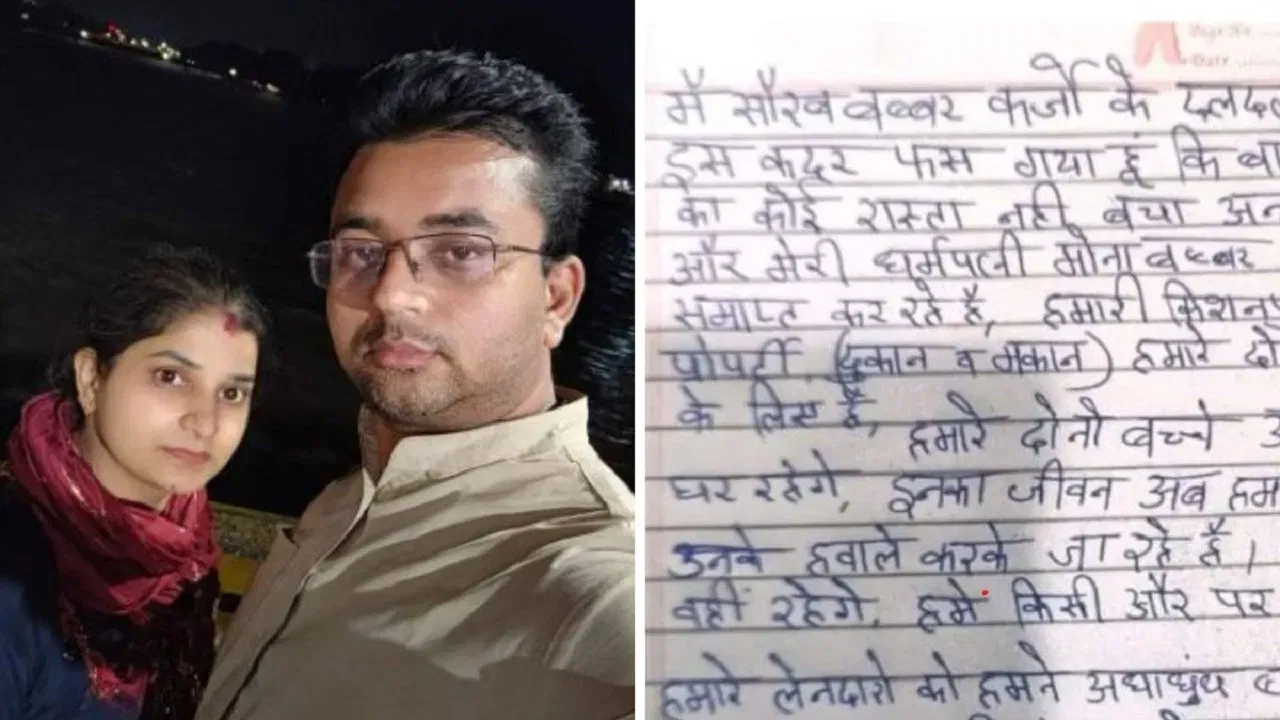 Page No.
Date
मैं सौरव बब्बर कर्जो के दलदल
इस कदर फस गया हूं कि बा
का कोई रास्ता नही बचा अन
और मेरी धर्मपत्नी मोना बब्बर
समाप्त कर रहे है, हमारी किशनप
प्रोपर्टी (दुकान व मकान) हमारे दो
के लिए है, हमारे दोनो बच्चे अ
घर रहेगे, इनका जीवन अब हम
उनके हवाले करके जा रहे है।
वहीं रहेगे, हमें किसी और पर
हमारे लेनदारो को हमने अंधाधुंध ब